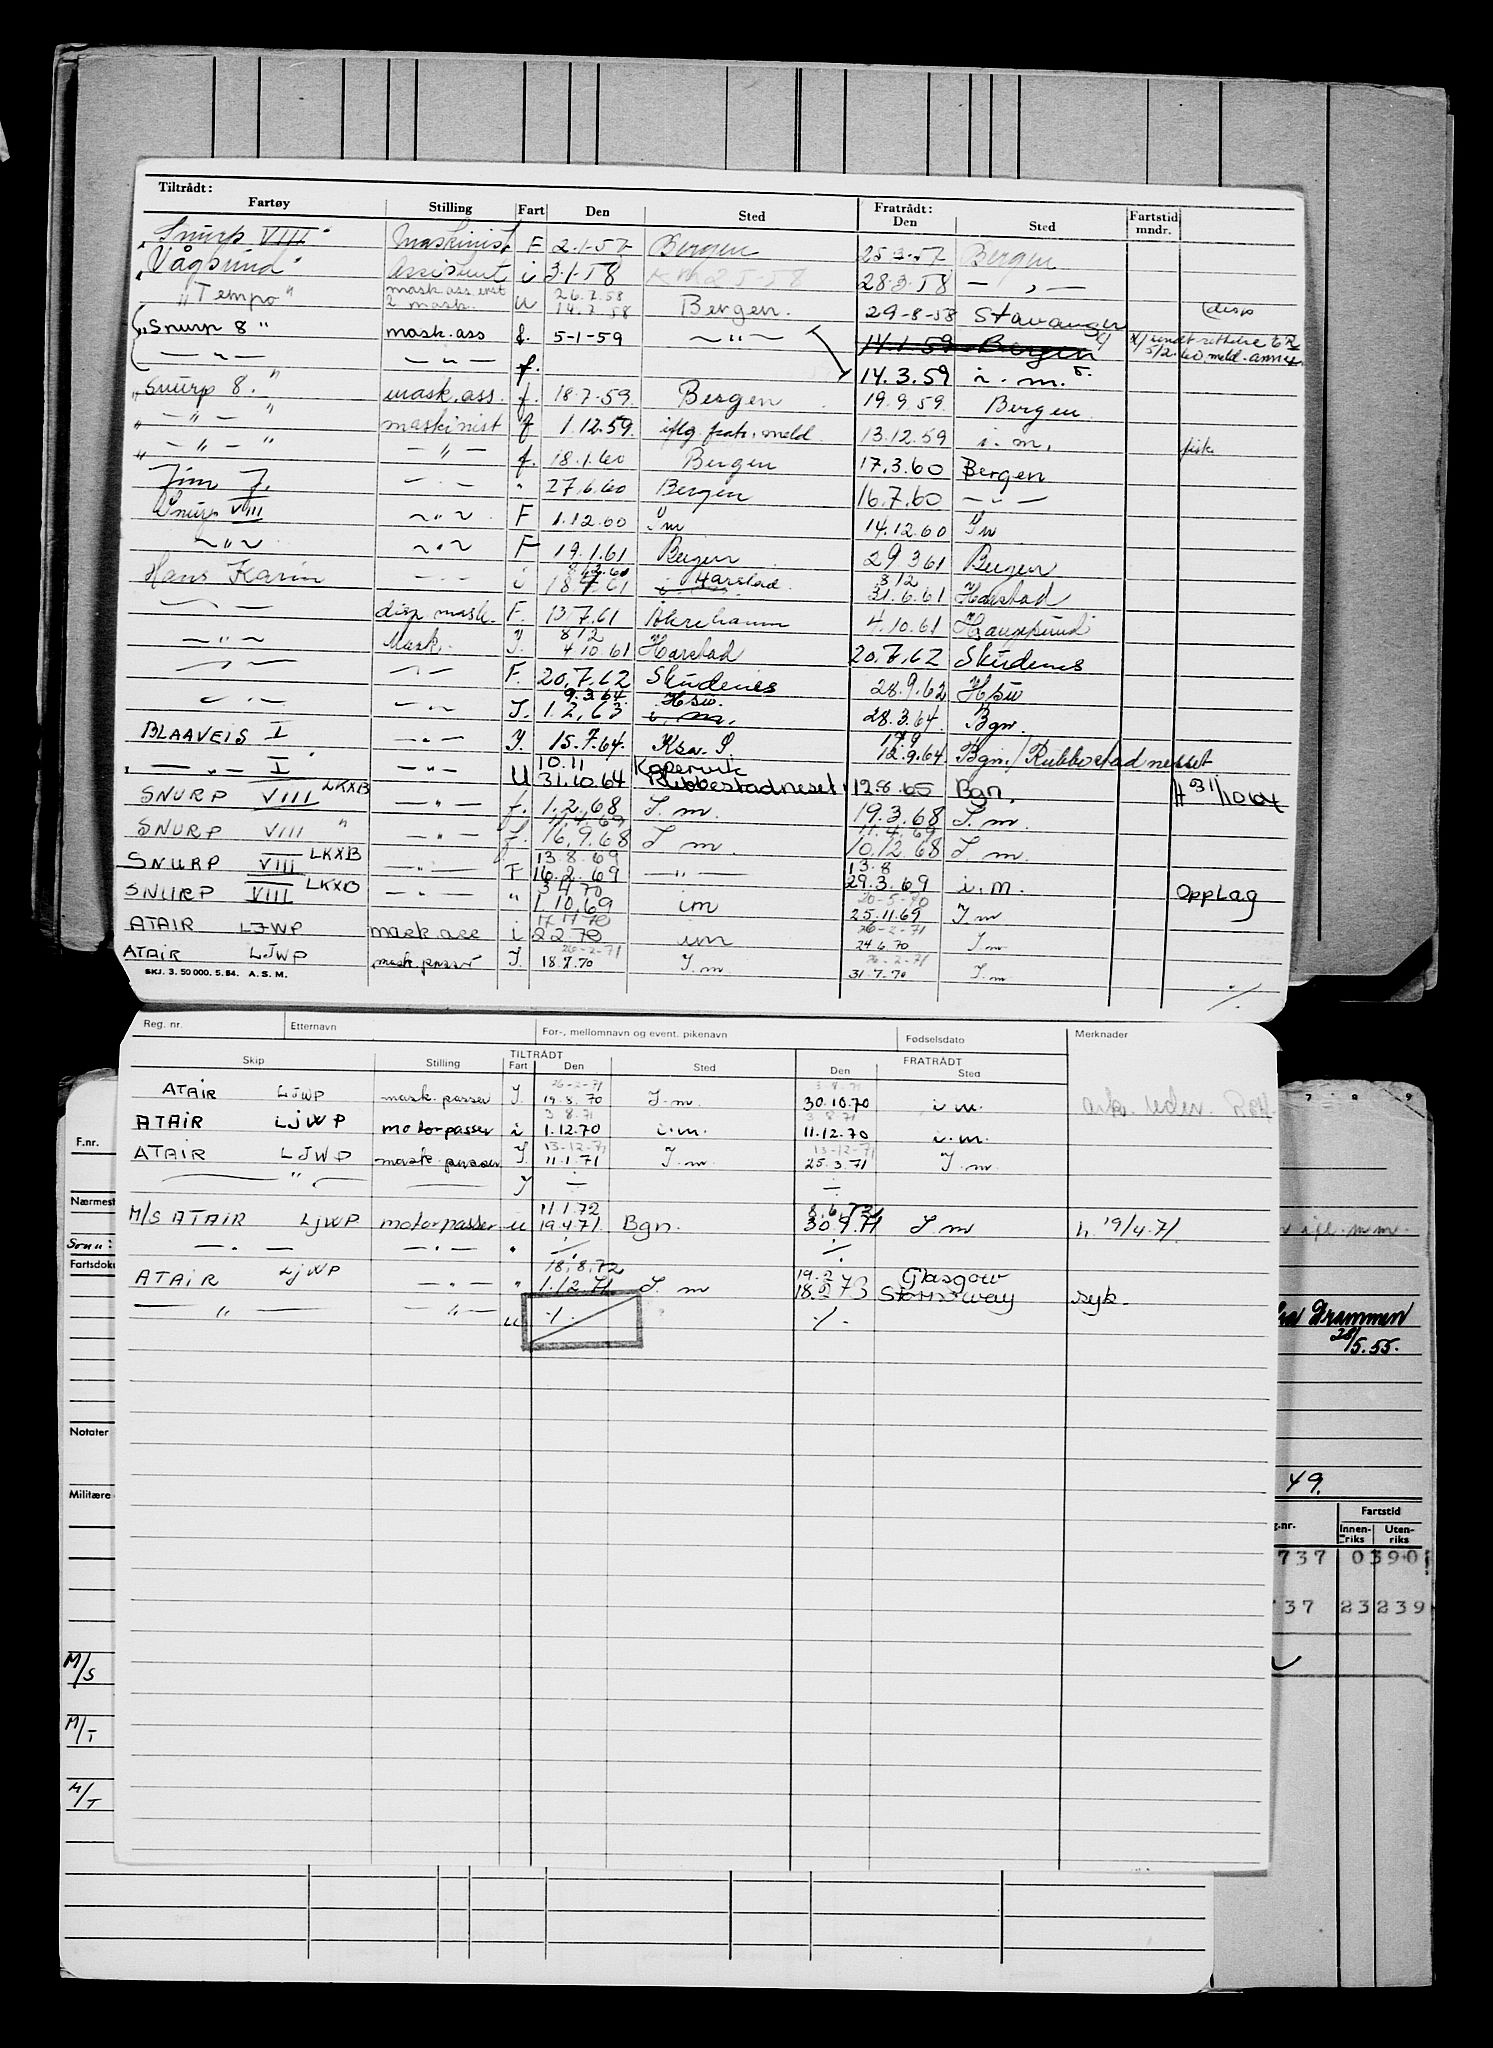 Tiltrådt: Fratrådt:
Fartøy Stilling Fart Den Sted Den Sted Fartstid mndr.
"Snurp VIII" Maskinist F 2.1.57 Bergen 25.3.57 Bergen
"Vågsund" Assistent i 3.1.58 28.3.58 — " —
"Tempo" mask.ass. 2 mask. u 26.7.58 14.7.58 Bergen. 29-8-58 Stavanger disp
"Snurp 8" mask.ass f. 5-1-59 — " — 14.1.59 Bergen x/ sendt rettelse
— " — — " — f. 14.3.59 i.m. 5/2.60 meld.
"Snurp 8." mask.ass. f. 18.7.59. Bergen 19.9.59. Bergen.
" — " — " maskinist f 1.12.59. iflg fratr. meld. 13.12.59 i.m. fisk.
" — " — " — " — f. 18.1.60 Bergen 17.3.60 Bergen
Jim J. — " — " 27.6.60 Bergen 16.7.60 — " —
Snurp VIII — " — F 1.12.60 Im 14.12.60 Im
— " — — " — F 19.1.61 Bergen 29 3 61 Bergen
Hans Karin — " — i Harstad. 3 12 31.6.61 Harstad
— " — disp mask. F. 13.7.61 Åkrehamn 4.10.61 Haugesund
— " — Mask. I. 8/2 4.10.61 Harstad 20.7.62 Skudenes
— " — — " — F. 20.7.62 Skudenes 28.9.62 Hsu
— " — — " — I. 9.3.64 1.2.63 Hsu. i.m. 28.3.64. Bgn.
BLAAVEIS I — " — I. 15.7.64. Ksu. S. 12.9.64 Bgn./Rubbestadnesset
" — " — I — " — U 10.11 31.10.64 Kopervik Rubbestadneset. 12.8.65 Bgn. # 31/10 64
SNURP VIII LKXB — " — f. 1.2.68 I.m. 19.3.68 I.m.
SNURP VIII " — " — f. 16.9.68 I m. 11.4.69 10.12.68 I m.
SNURP VIII LKXB — " — F 13.8.69 16.2.69 — " — 13.8 29.3.69 i.m.
SNURP VIII LKXB — " — " 3 4 70 1.10.69 im 20-5-70 25.11.69 I m Opplag
ATAIR LJWP mask.ass i 17.11.70 2.2.70 im 26-2-71 24.6.70 I.m
ATAIR LJWP mask.passer I. 26-2-71 18.7.70 I.m 26-2-71 31.7.70 I.m
SKJ. 3. 50 000. 5. 54. A.S.M. ./.
Reg. nr. Etternavn For-, mellomnavn og event. pikenavn Fødselsdato Merknader
TILTRÅDT FRATRÅDT
Skip Stilling Fart Den Sted Den Sted
ATAIR LJWP mask.passer I. 26-2-71 19.8.70 I.m. 3.8.71 30.10.70 i.m.
ATAIR LJWP motorpasser i 3.8.71 1.12.70 i.m. 3.8.71 11.12.70 i.m.
ATAIR LJWP mask.passer I. 13-12-71 11.1.71 I.m 13-12-71 25.3.71 I.m
— " — — I ÷ ÷
M/S ATAIR LJWP motorpasser u 11 1.72 19.4.71. Bgn. 30.9.71 I m h. 19/4.71.
— " — — " — " ./. ./.
ATAIR LJWP — " — " 18.8.72 1.12.71 I.m 19.2 18.2 73 Glasgow Stornoway syk.
— " — — " — u ./. ./.
F.nr.
Nærmest
Sønn:
Fartsdoku
fra Drammen
28/5.55.
Notater
49.
Militære
Fartstid
g.nr. Innen-riks Uten-riks
737 03901
737 23239
M/S
M/T
M/T
7 8 9